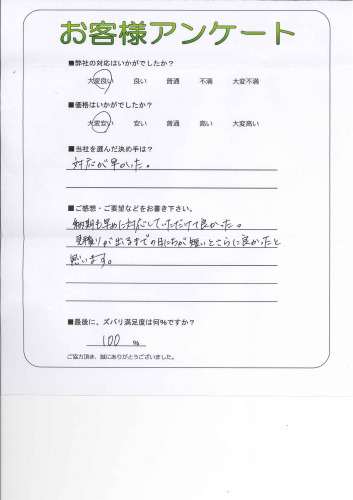 お客様アンケート
■弊社の対応はいかがでしたか?
大変良い 良い 普通 不満 大変不満
■価格はいかがでしたか?
大変安い 安い 普通 高い 大変高い
■当社を選んだ決め手は?
対応が早かった。
■ご感想・ご要望などをお書き下さい。
納期も早めに対応していただけて良かった。
見積りが出るまでの日にちが短いとさらに良かったと
思います。
■最後に、ズバリ満足度は何%ですか?
100 %
ご協力頂き、誠にありがとうございました。